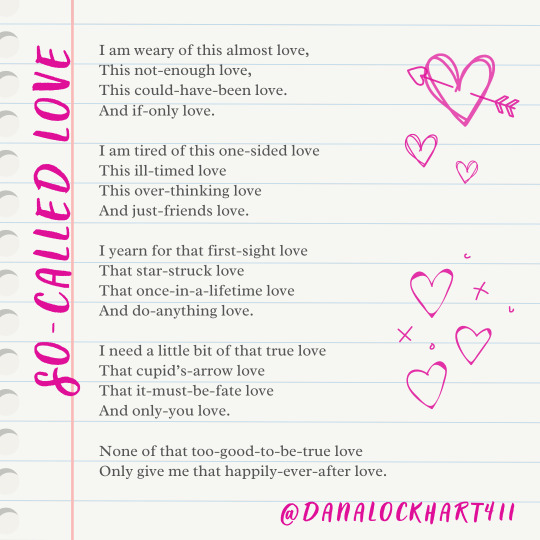 SO-CALLED LOVE
I am weary of this almost love,
This not-enough love,
This could-have-been love.
And if-only love.
I am tired of this one-sided love
This ill-timed love
This over-thinking love
And just-friends love.
I yearn for that first-sight love
That star-struck love
That once-in-a-lifetime love
And do-anything love.
I need a little bit of that true love
That cupid’s-arrow love
That it-must-be-fate love
And only-you love.
None of that too-good-to-be-true love
Only give me that happily-ever-after love.
@DANALOCKHART411